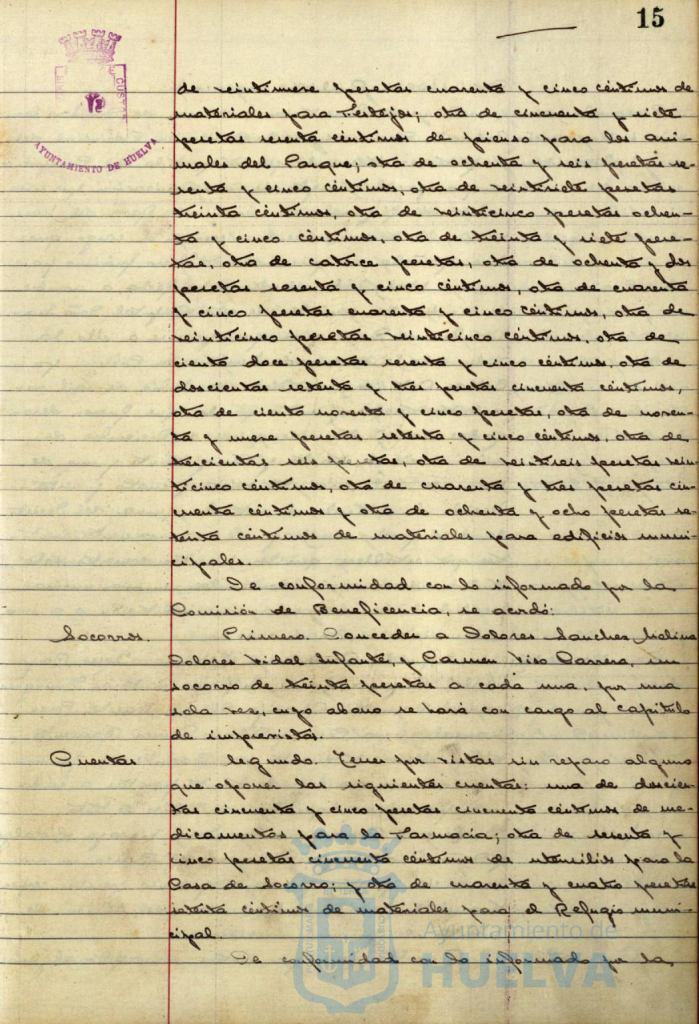 15
AYUNTAMIENTO DE HUELVA
de veintinueve pesetas cuarenta y cinco céntimos de
materiales para Festejos; otra de cincuenta y siete
pesetas sesenta céntimos de pienso para los ani-
males del Parque; otra de ochenta y seis pesetas se-
senta y cinco céntimos, otra de veintisiete pesetas
treinta céntimos, otra de veinticinco pesetas ochen-
ta y cinco céntimos, otra de treinta y siete pese-
tas, otra de catorce pesetas, otra de ochenta y dos
pesetas sesenta y cinco céntimos, otra de cuarenta
y cinco pesetas cuarenta y cinco céntimos, otra de
veinticinco pesetas veinticinco céntimos, otra de
ciento doce pesetas sesenta y cinco céntimos, otra de
doscientas setenta y tres pesetas cincuenta céntimos,
otra de ciento noventa y cinco pesetas, otra de noven-
ta y nueve pesetas setenta y cinco céntimos, otra de
trescientas seis pesetas, otra de veintiseis pesetas vein-
ticinco céntimos, otra de cuarenta y tres pesetas cin-
cuenta céntimos y otra de ochenta y ocho pesetas se-
tenta céntimos de materiales para edificios muni-
cipales.
De conformidad con lo informado por la
Comisión de Beneficencia, se acordó:
Socorros. Primero. Conceder a Dolores Sanchez Molina
Dolores Vidal Infante, y Carmen Viso Carrera, un
socorro de treinta pesetas a cada una, por una
sola vez, cuyo abono se hará con cargo al capítulo
de imprevistos.
Cuentas Segundo. Tener por vistas sin reparo alguno
que oponer las siguientes cuentas: una de doscien-
tas cincuenta y cinco pesetas cincuenta céntimos de me-
dicamentos para la Farmacia; otra de sesenta y
cinco pesetas cincuenta céntimos de utensilios para la
Casa de Socorro; y otra de cuarenta y cuatro pesetas
setenta céntimos de materiales para el Refugio muni-
cipal.
De conformidad con lo informado por la
Ayuntamiento de
HUELVA